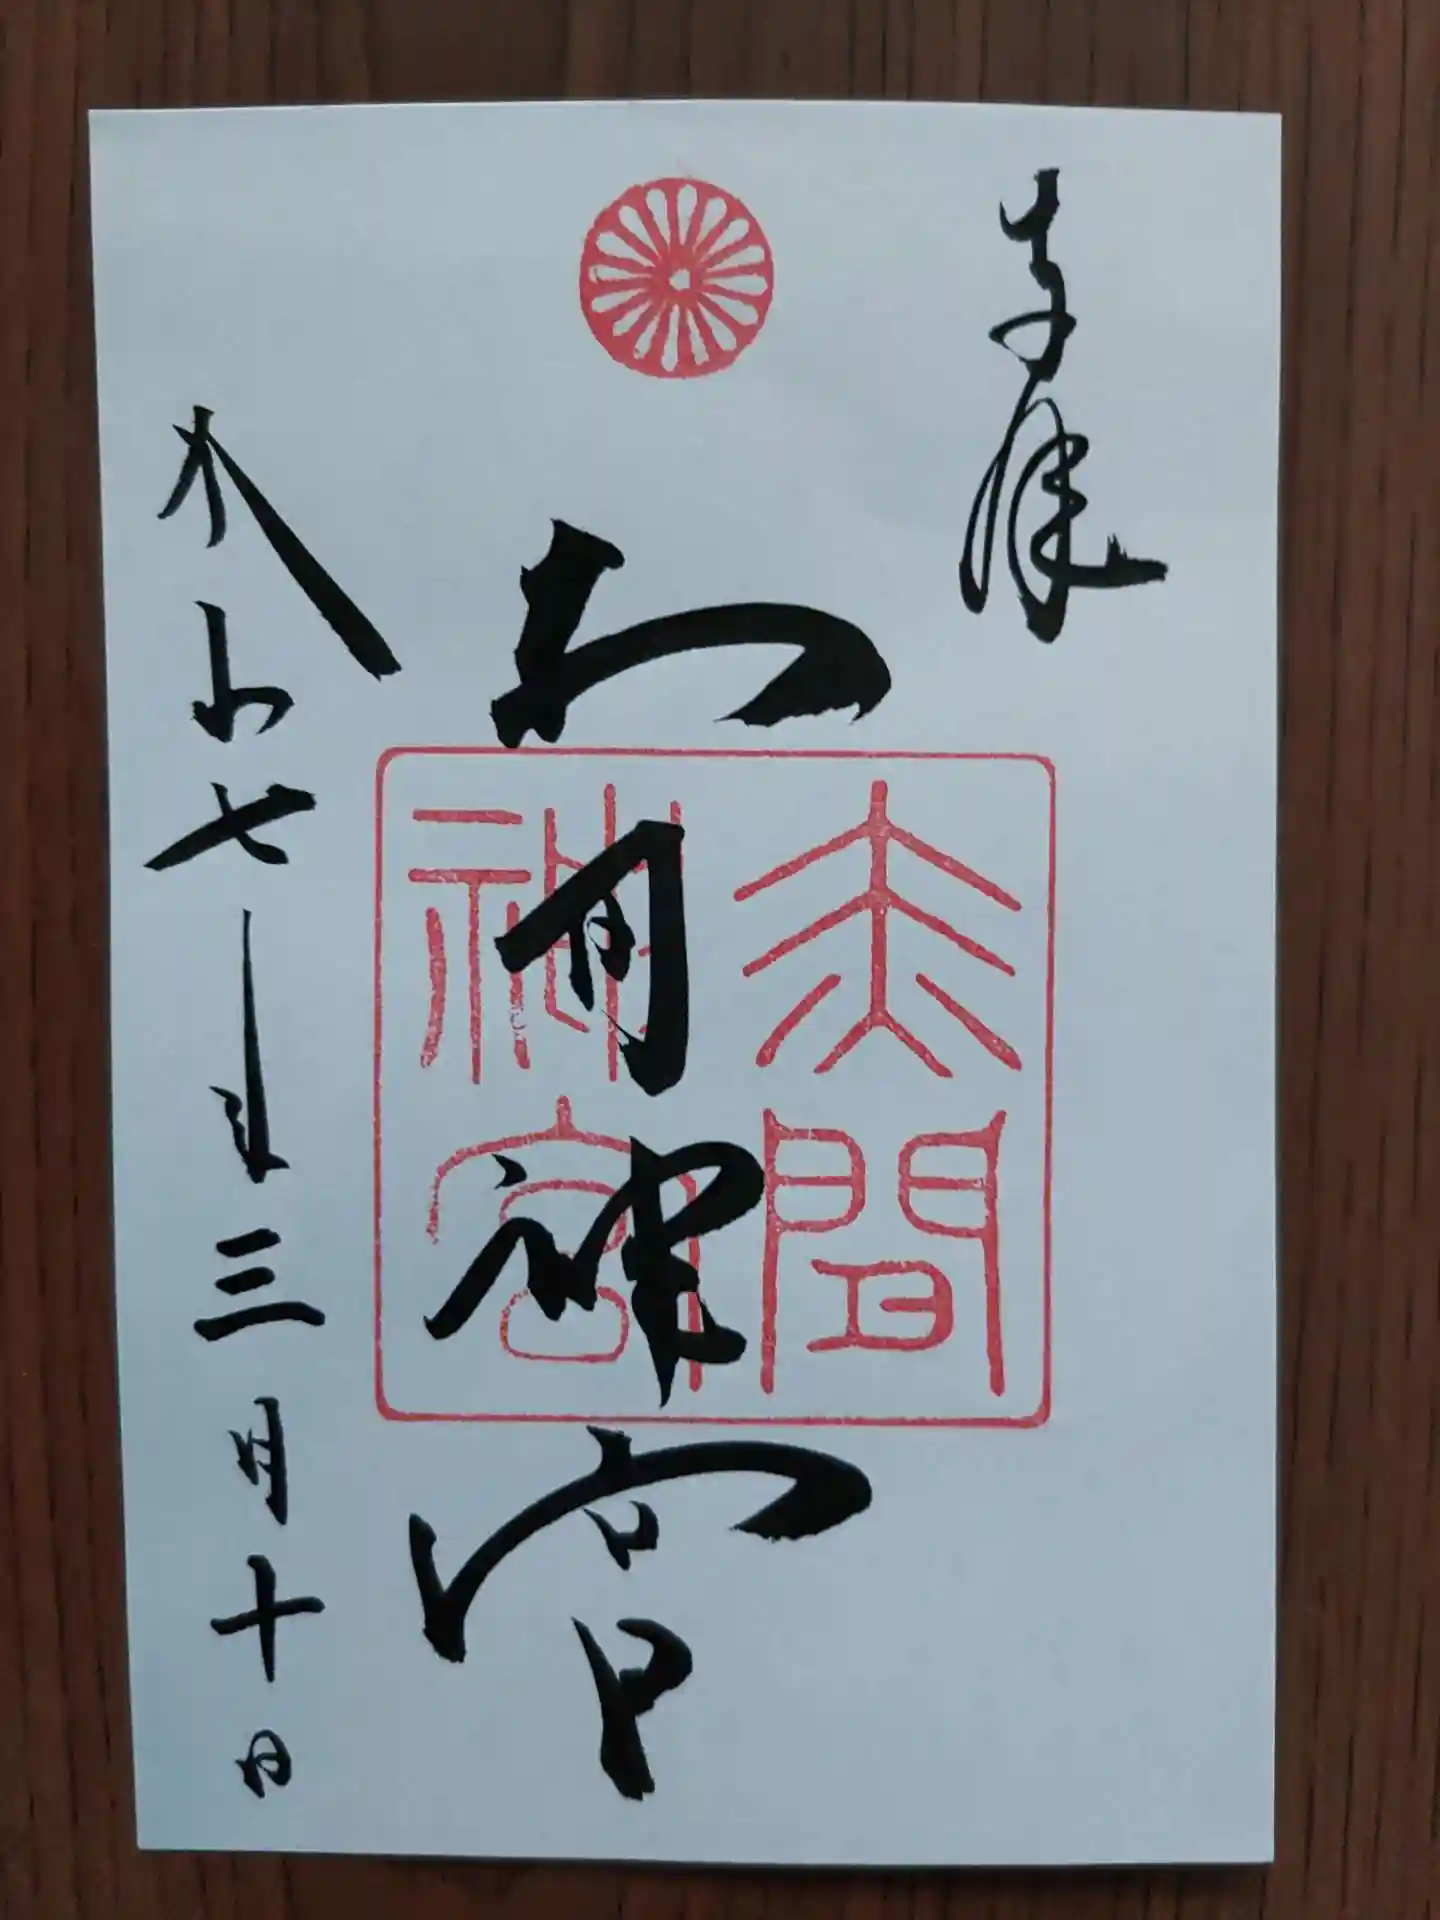 奉拝
赤間神宮
赤間
神宮
令和七年三月十日